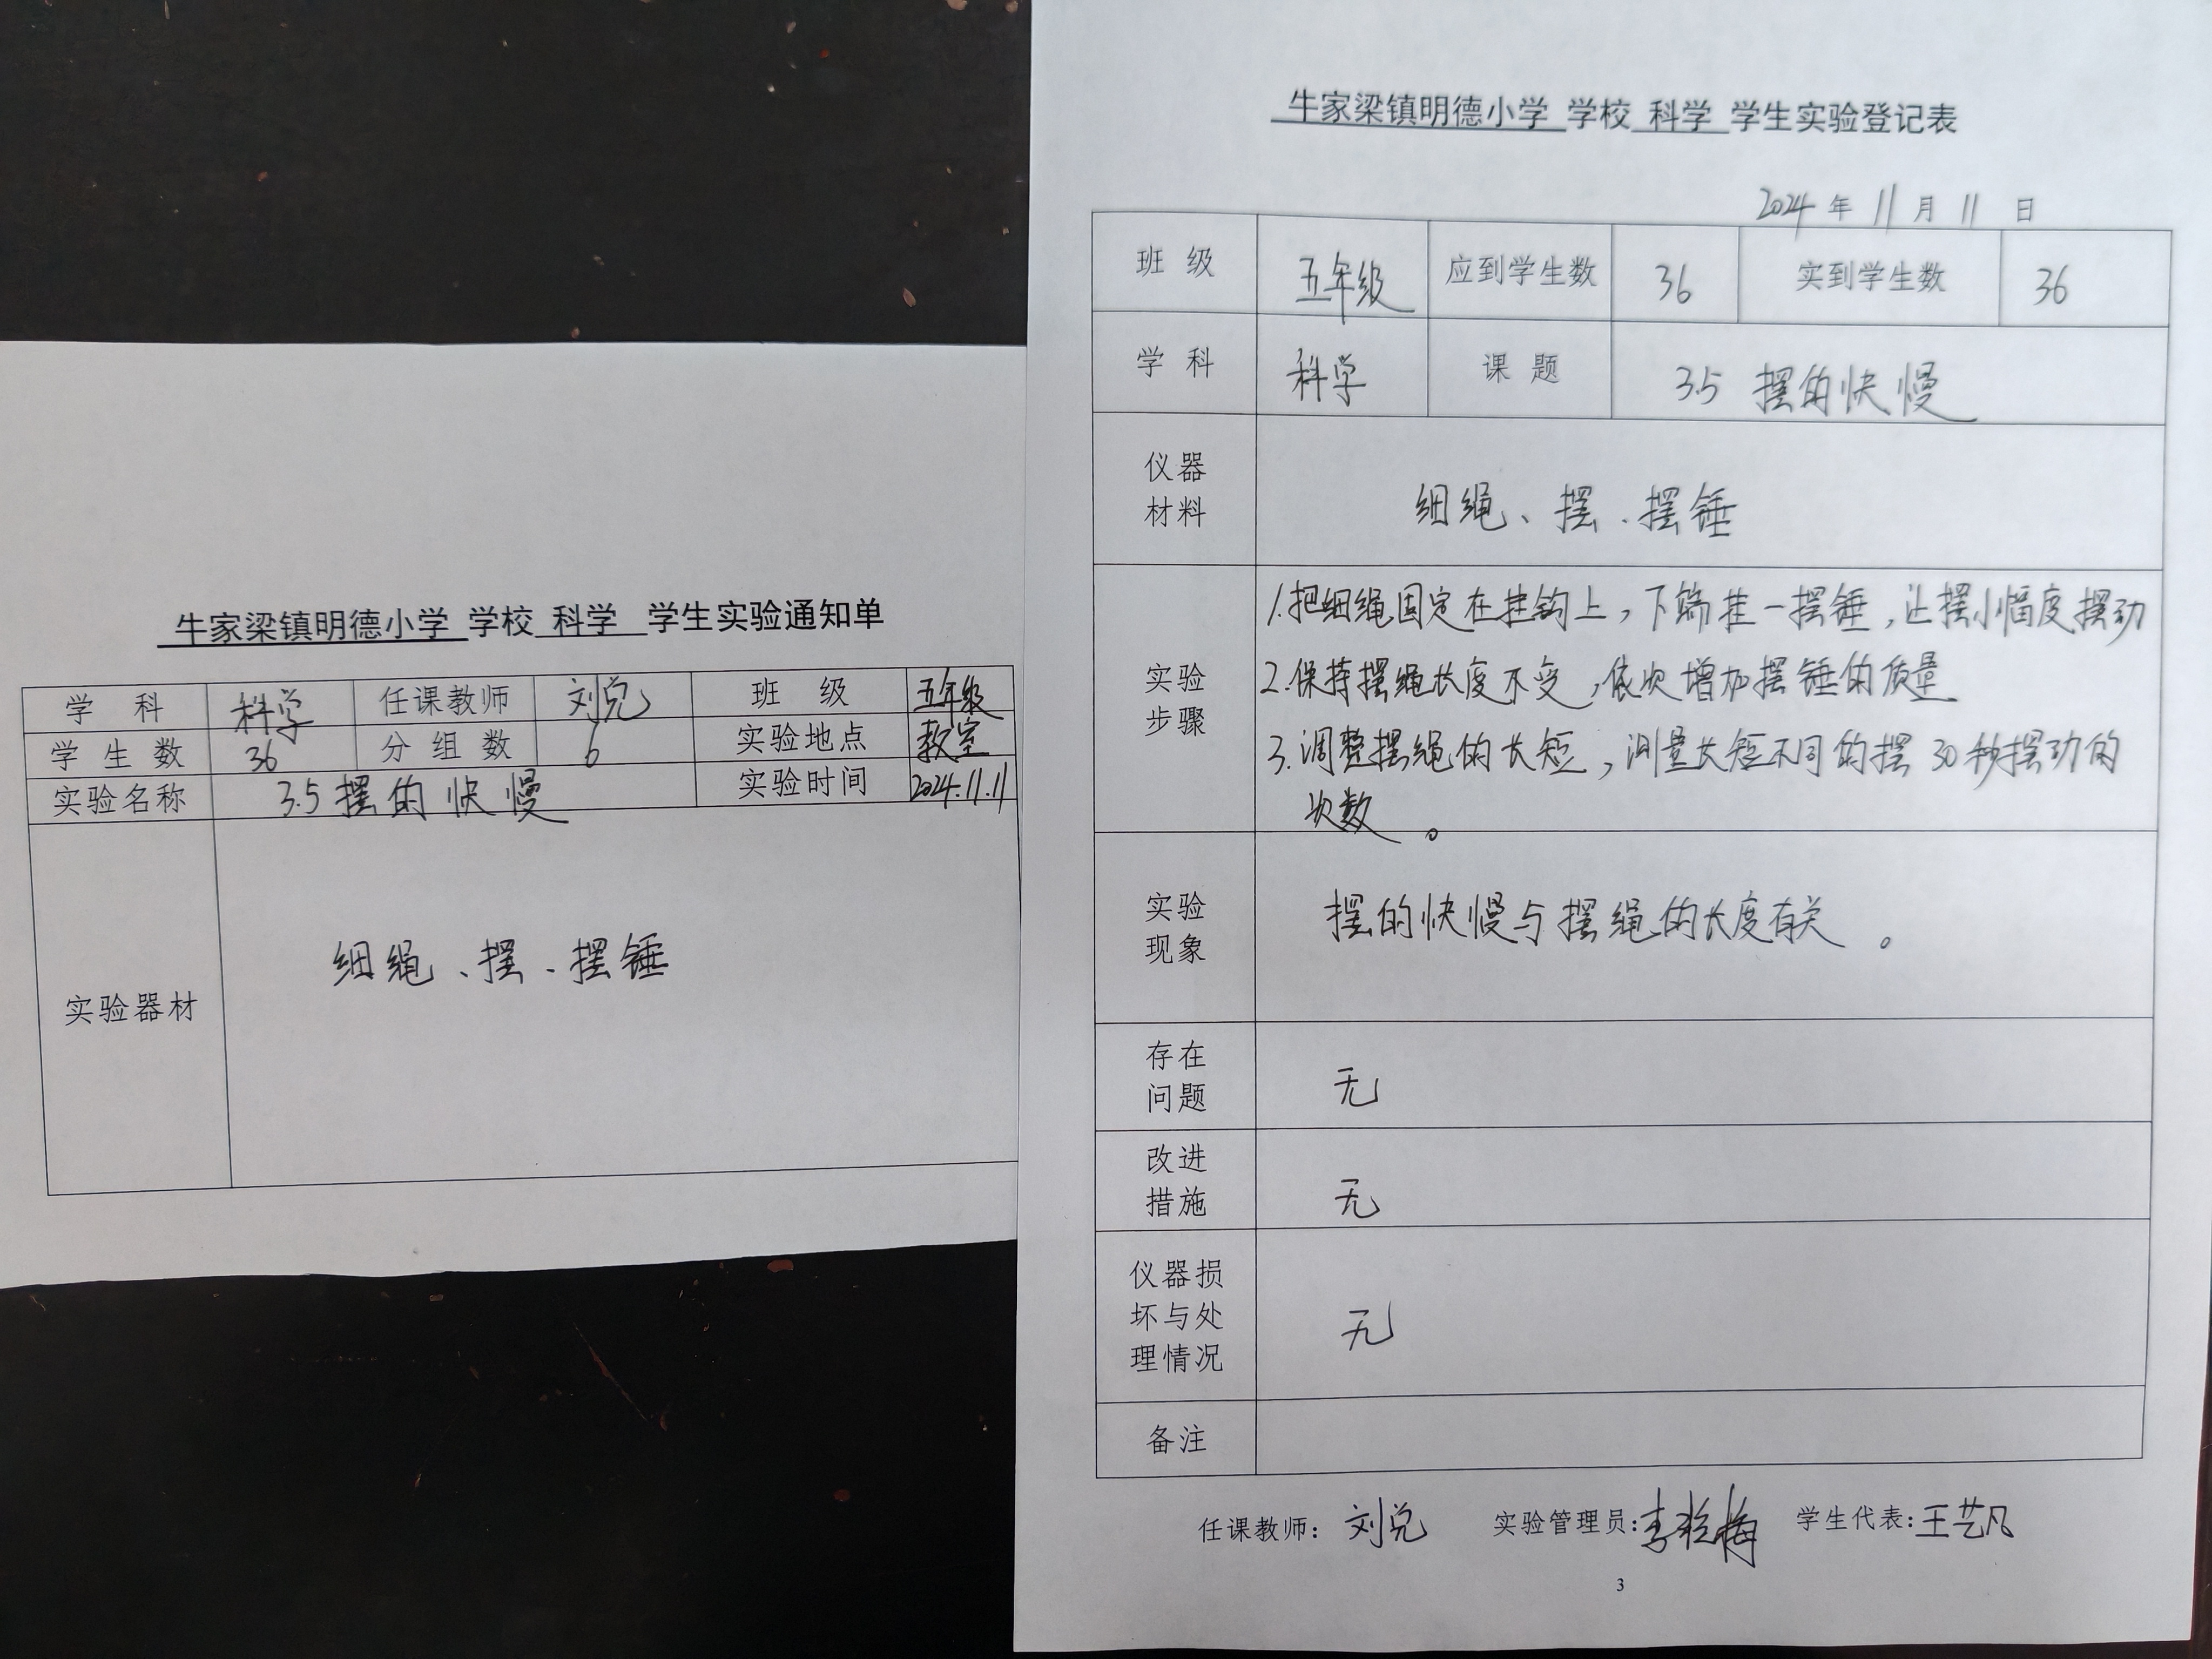 牛家梁镇明德小学 学校 科学 学生实验通知单
学 科 科学 任课教师 刘兑 班 级 五年级
学 生 数 36 分 组 数 6 实验地点 教室
实验名称 3.5 摆的快慢 实验时间 2024.11.11
实验器材 细绳、摆、摆锤
牛家梁镇明德小学 学校 科学 学生实验登记表
2024 年 11 月 11 日
班 级 五年级 应到学生数 36 实到学生数 36
学 科 科学 课 题 3.5 摆的快慢
仪器
材料
细绳、摆、摆锤
实验
步骤
1.把细绳固定在挂钩上，下端挂一摆锤，让摆小幅度摆动
2.保持摆绳长度不变，依次增加摆锤的质量
3.调整摆绳的长短，测量长短不同的摆30秒摆动的
次数。
实验
现象
摆的快慢与摆绳的长度有关。
存在
问题
无
改进
措施
无
仪器损
坏与处
理情况
无
备注
任课教师：刘兑 实验管理员： 学生代表：王艺凡
3